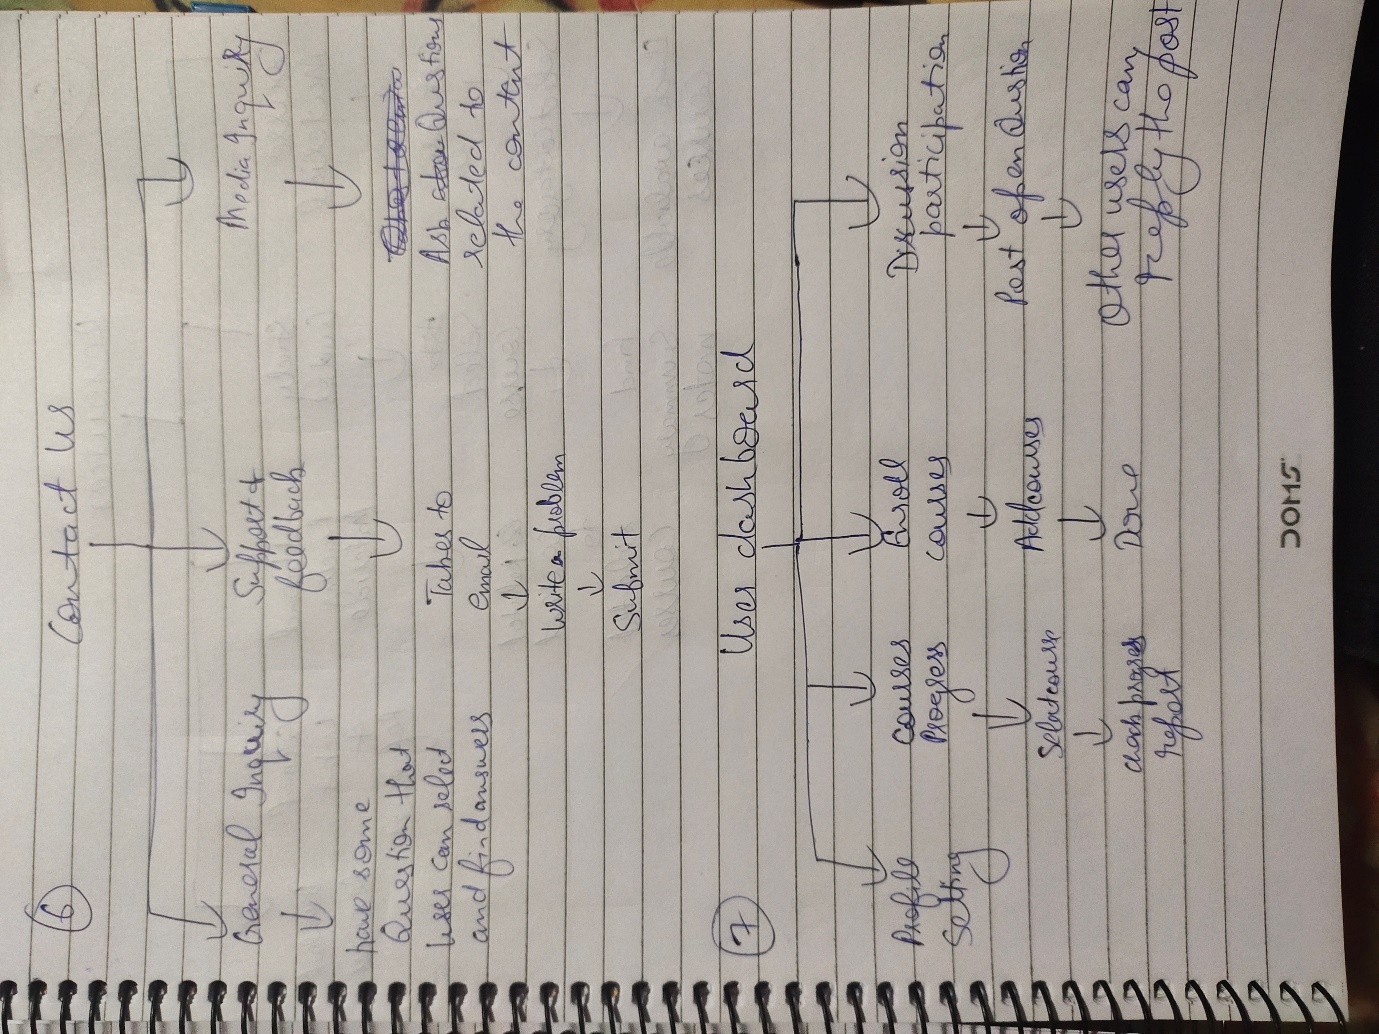 6
Contact Us
General Inquiry
have some
Question that
user can select
and find answers
Support &
feedback
Takes to
email
write problem
Submit
Media Inquiry
Ask Questions
related to
the content
7
User dashboard
Profile
Setting
Courses
Progress
Select course
check progres
report
Enroll
courses
Add courses
Done
Discussion
participation
Post open Qustion
Other users can
reply tho post
DOMS